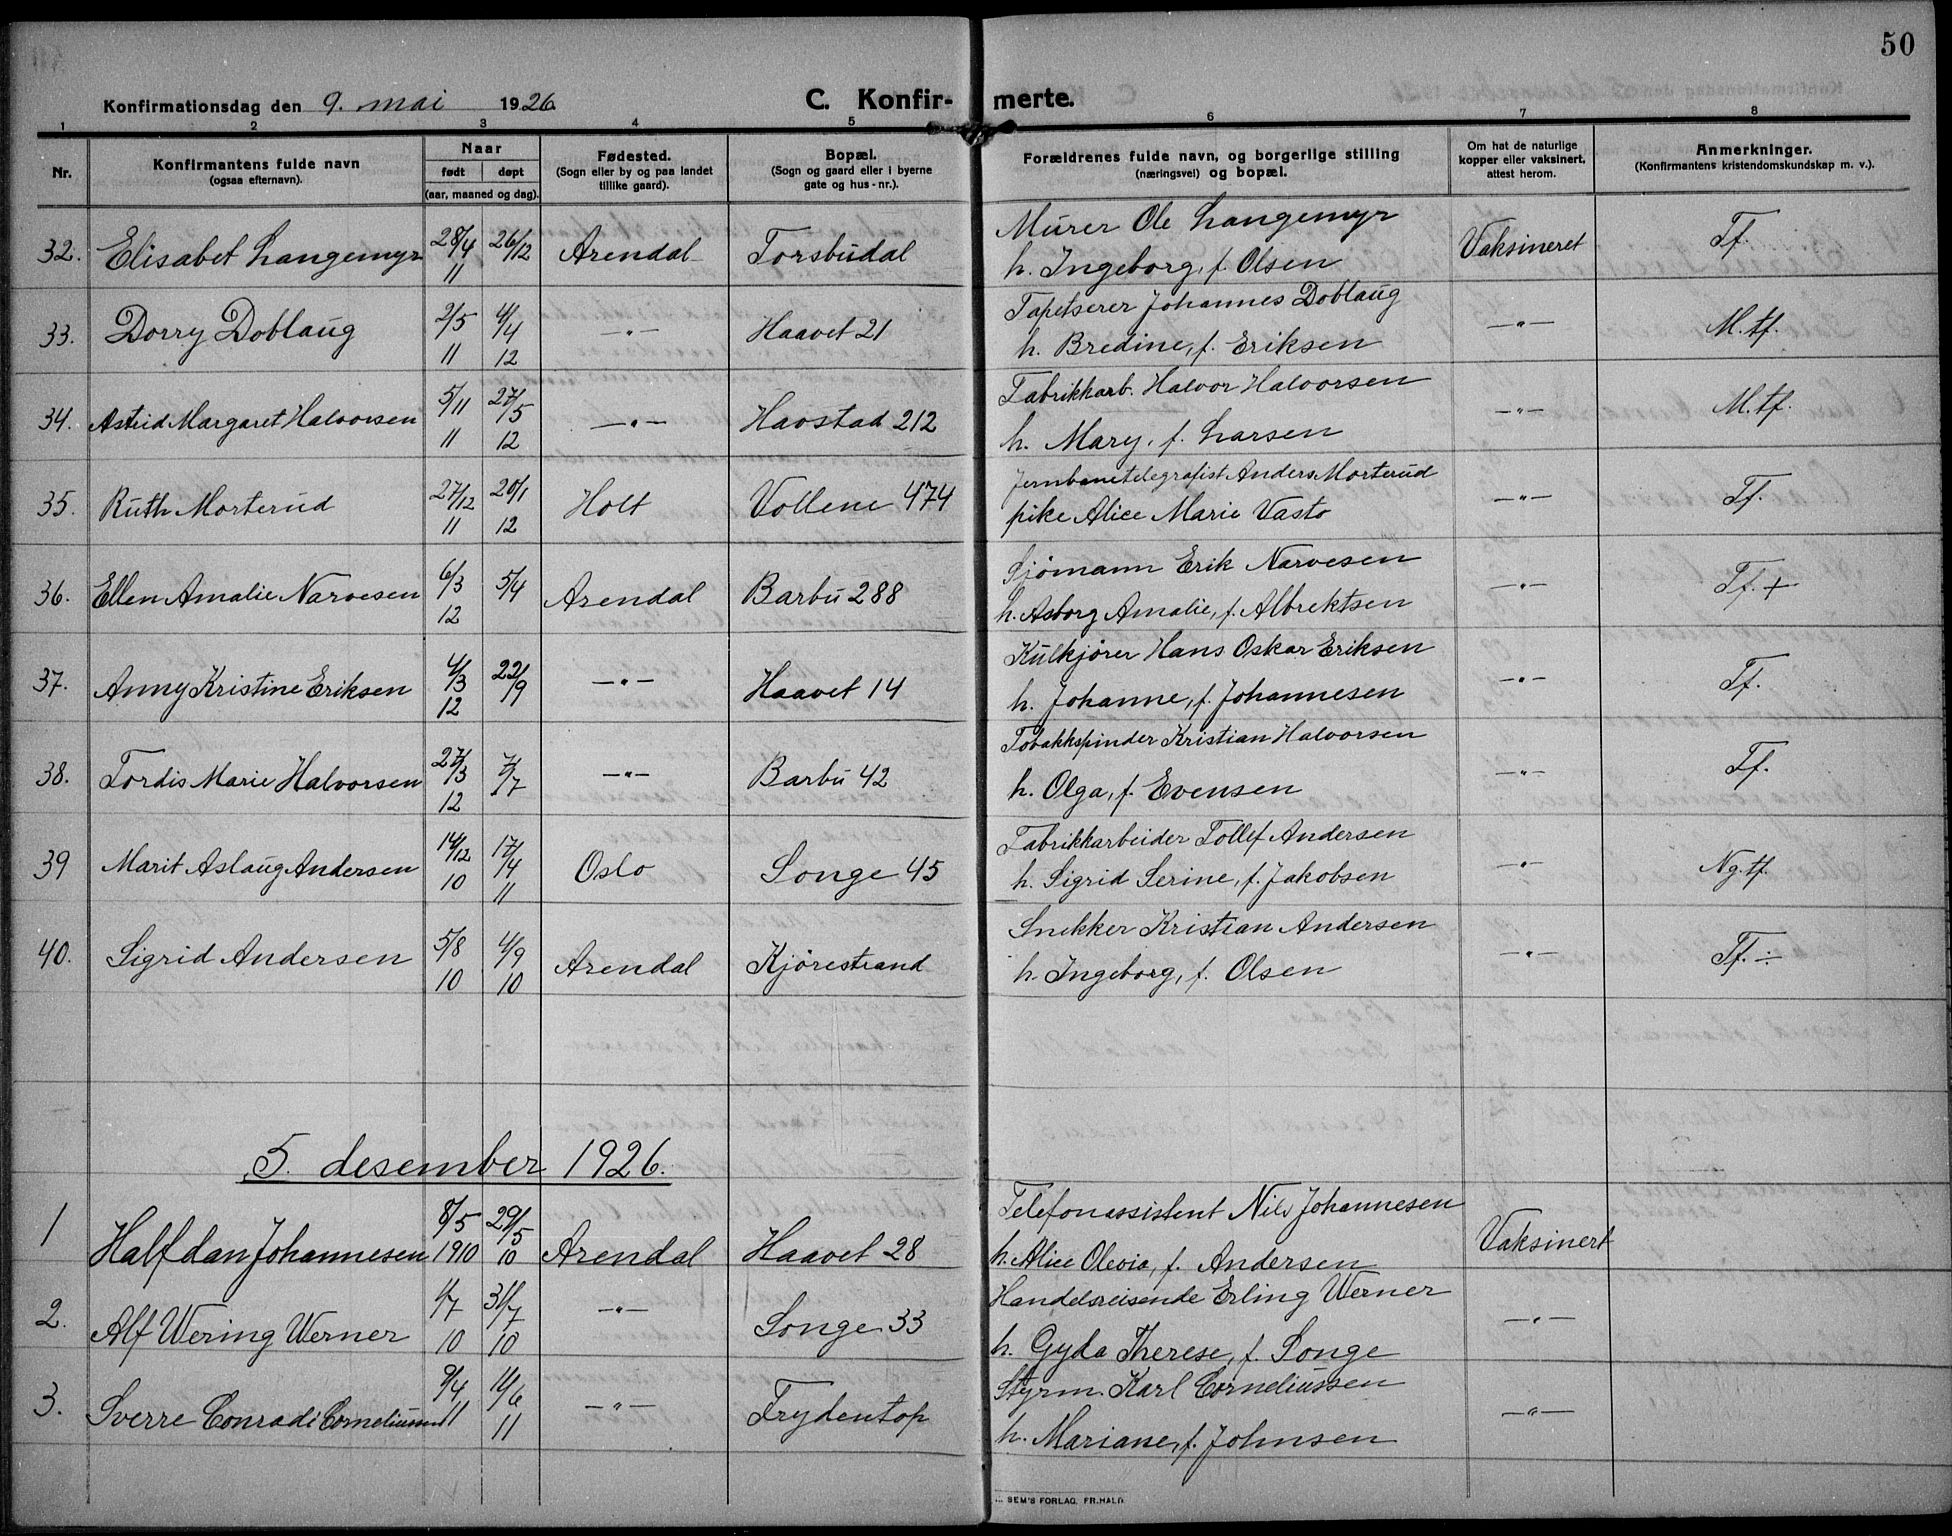 50
Konfirmationsdag den 9. mai 1926
C. Konfirmerte.
1 2 3 4 5 6 7 8
Nr.
Konfirmantens fulde navn
(ogsaa efternavn).
Naar
født døpt
(aar, maaned og dag).
Fødested.
(Sogn eller by og paa landet
tillike gaard).
Bopæl.
(Sogn og gaard eller i byerne
gate og hus-nr.).
Forældrenes fulde navn, og borgerlige stilling
(næringsvei) og bopæl.
Om hat de naturlige
kopper eller vaksinert,
attest herom.
Anmerkninger.
(Konfirmantens kristendomskundskap m. v.).
32. Elisabet Langemyr 28/4 11 26/12 Arendal Torsbudal
Murer Ole Langemyr
h. Ingeborg, f. Olsen
Vaksineret Tf.
33. Dorry Doblaug 2/5 11 4/4 12 —"— Haavet 21
Tapetserer Johannes Doblaug
h. Bredine, f. Eriksen
—"— M.tf.
34. Astrid Margaret Halvorsen 5/11 11 27/5 12 —"— Havstad 212
Fabrikkarb. Halvor Halvorsen
h. Mary, f. Larsen
—"— M.tf.
35. Ruth Morterud 27/12 11 20/1 12 Holt Vollene 474
Jernbanetelegrafist Anders Morterud
pike Alice Marie Vasto
—"— Tf.
36. Ellen Amalie Narvesen 6/3 12 5/4 Arendal Barbu 288
Sjømann Erik Narvesen
h. Asborg Amalie, f. Albrektsen
—"— Tf. +
37. Anny Kristine Eriksen 4/3 12 22/9 —"— Haavet 14
Kulkjører Hans Oskar Eriksen
h. Johanne, f. Johannesen
—"— Tf.
38. Tordis Marie Halvorsen 27/3 12 7/7 —"— Barbu 42
Tobakkspinder Kristian Halvorsen
h. Olga, f. Evensen
—"— Tf.
39 Marit Aslaug Andersen 14/12 10 17/14 11 Oslo Songe 45
Fabrikkarbeider Tollef Andersen
h. Sigrid Serine, f. Jakobsen
—"— Ng.tf.
40. Sigrid Andersen 5/8 10 4/9 10 Arendal Kjørestrand
Snekker Kristian Andersen
h. Ingeborg, f. Olsen
—"— Tf. ÷
5. desember 1926.
1 Halfdan Johannesen 8/5 1910 29/5 10 Arendal Haavet 28
Telefonassistent Nils Johannesen
h. Alice Olevia, f. Andersen
Vaksinert
2. Alf Wering Werner 1/7 10 31/7 10 —"— Songe 33
Handelsreisende Erling Werner
h. Gyda Therese, f. Songe
—"—
3. Sverre Conradi 9/4 11 11/6 11 —"— Frydentop
Styrm. Karl Corneliussen
h. Mariane, f. Johnsen
—"—
SEM'S FORLAG, FR.HALD